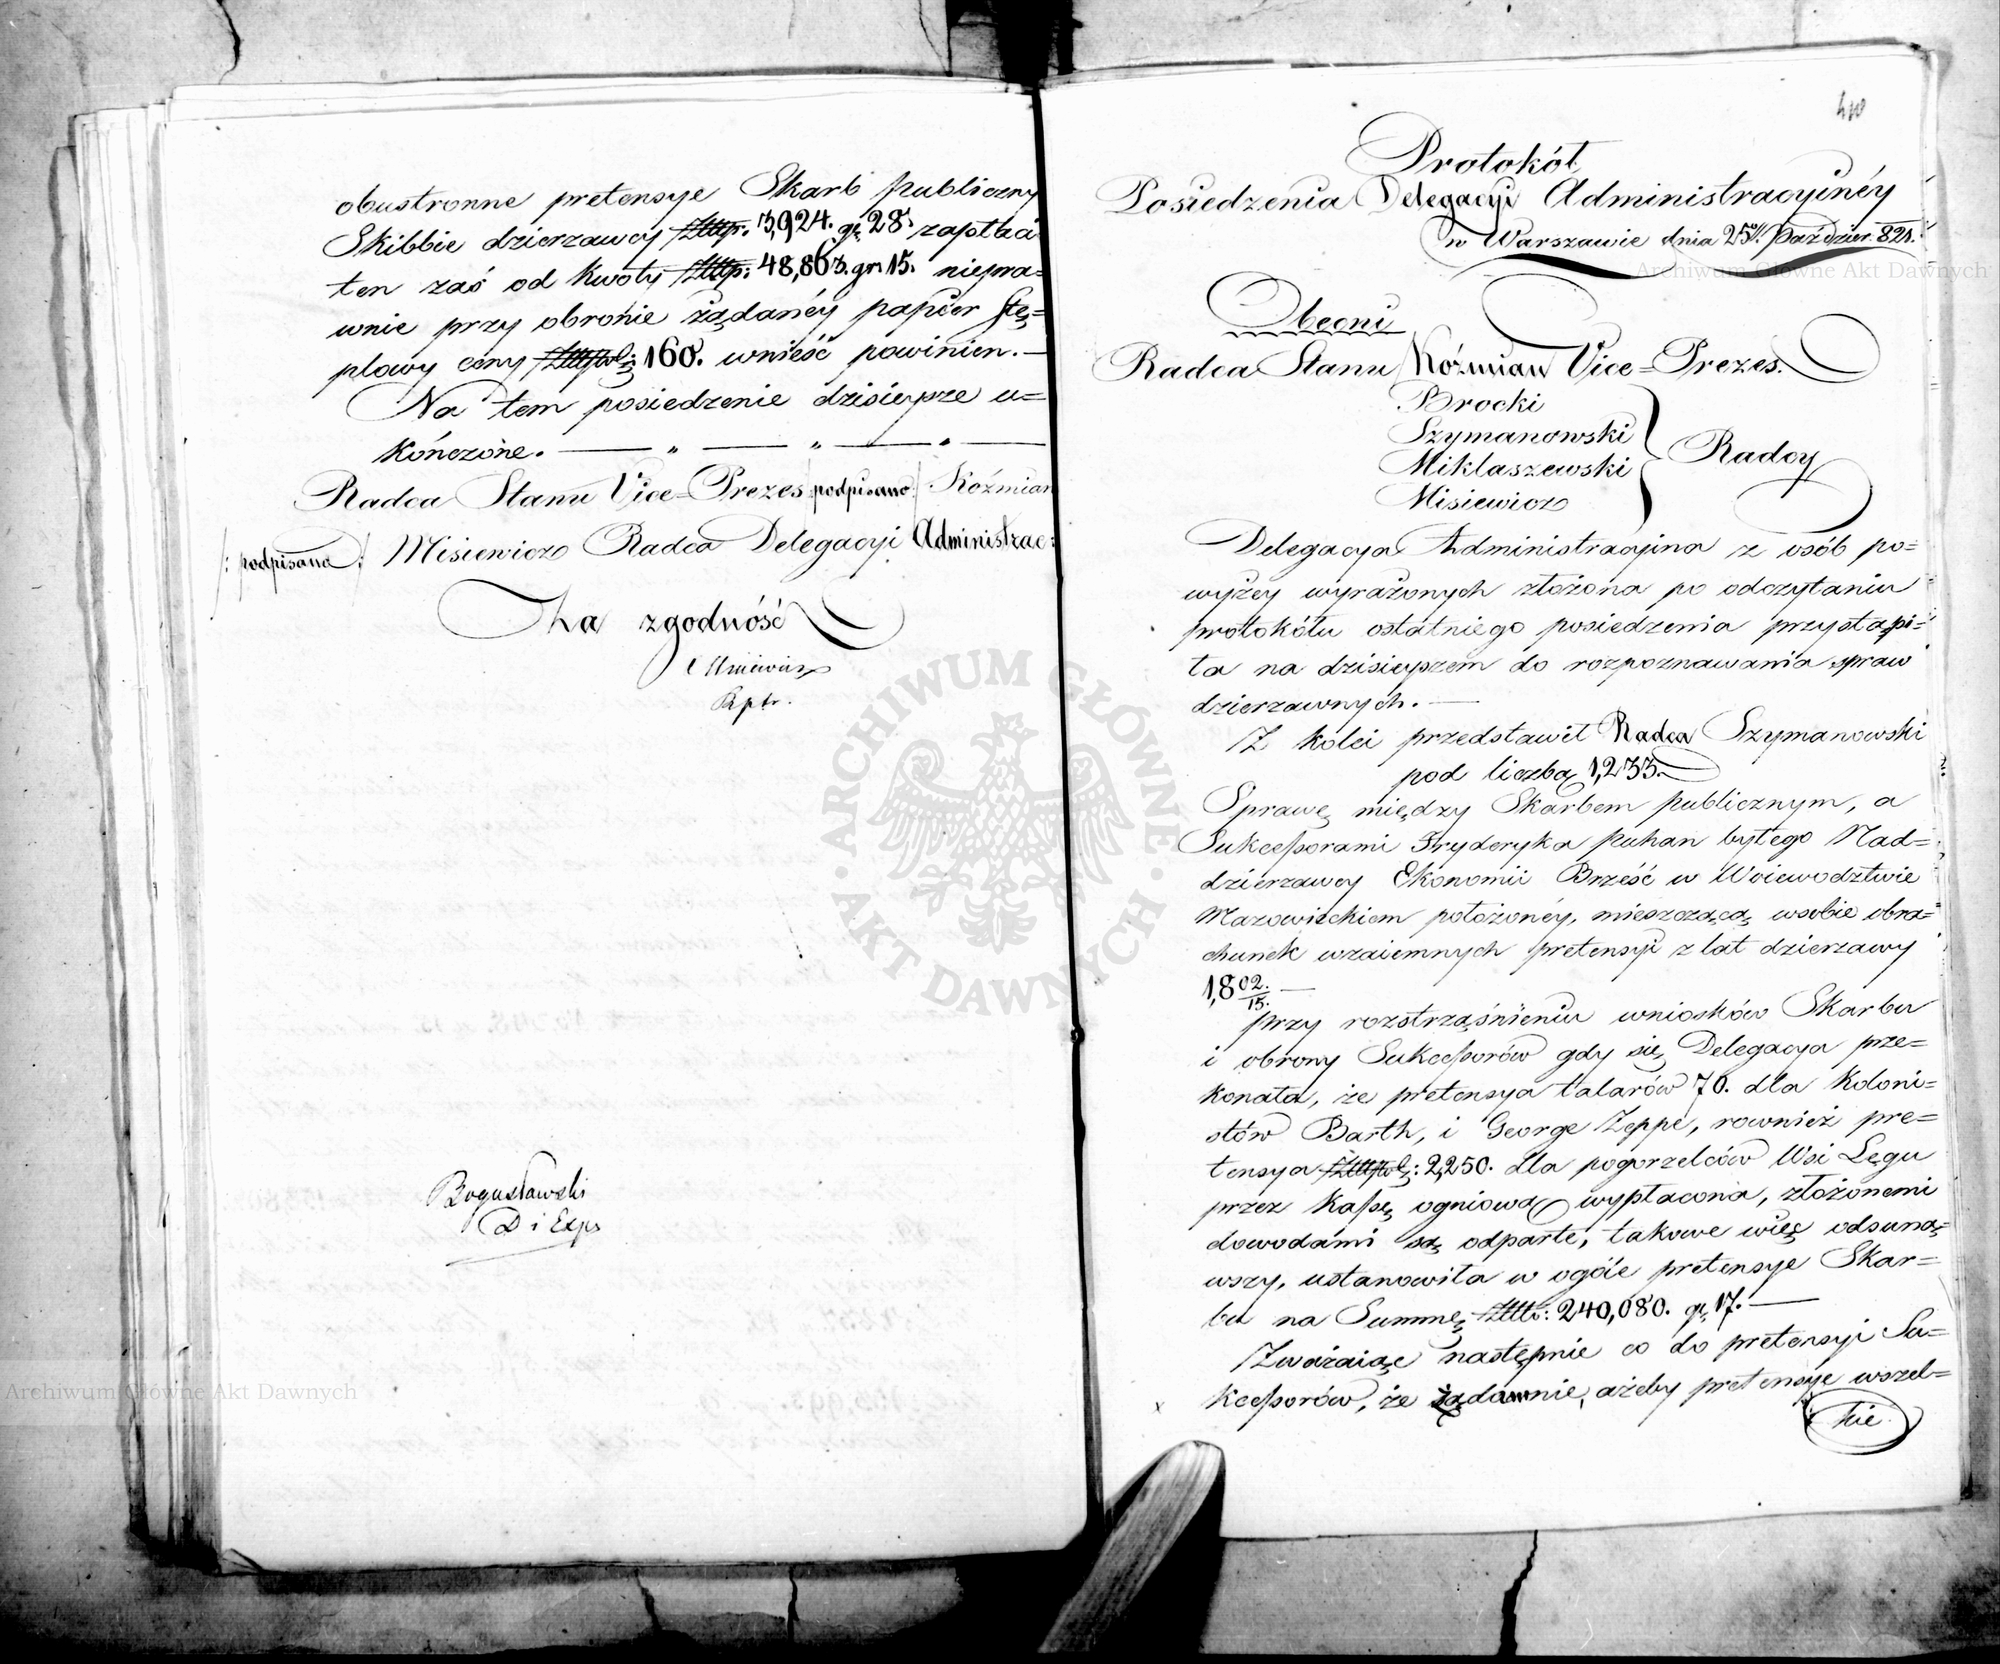 obustronne pretensye Skarb publiczny
Skibbie dzierzawcy Złłp. 3,924. gr. 28. zapłaci
ten zaś od kwoty Złłp: 48,863. gr. 15. niepra=
wnie przy obronie żądanéy papier stę=
plowy ceny Złłpol: 160. wnieść powinien. —
Na tem posiedzenie dzisieysze u=
kończone. — „ — „ — „ —
Radca Stanu Vice=Prezes /podpisano/ Koźmian
/: podpisano :/ Misiewicz Radca Delegacyi Administrac:
Za zgodność
Rptr.
Bogusławski
D i Exp
Protokół
Posiedzenia Delegacyi Administracyinéy
w Warszawie dnia 25go Paździer. 821.
Obecni
Radca Stanu Koźmian Vice=Prezes.
Brocki
Szymanowski
Miklaszewski
Misiewicz
Radcy
Delegacya Administracyina z osób po=
wyżey wyrażonych złożona po odczytaniu
protokółu ostatniego posiedzenia przystąpi=
ła na dzisieyszem do rozpoznawania spraw
dzierzawnych. —
Z kolei przedstawił Radca Szymanowski
pod liczbą 1,233.
Sprawę między Skarbem publicznym, a
Sukcessorami Fryderyka Puhan byłego Nad=
dzierzawcy Ekonomii Brześć w Woiewodztwie
Mazowieckiem położonéy, mieszczącą wsobie obra=
chunek wzaiemnych pretensyi z lat dzierzawy
1,802/15. —
przy rozstrząśnieniu wniosków Skarbu
i obrony Sukcessorów gdy się Delegacya prze=
konała, że pretensya talarów 70. dla Koloni=
stów Barth, i George Zeppe, rownież pre=
tensya Złłpol: 2,250. dla pogorzelców Wsi Lęgu
przez Kassę ogniową wypłacona, złożonemi
dowodami są odparte, takowe więc odsuną=
wszy, ustanowiła w ogóle pretensye Skar=
bu na Summę Złłp: 240,080. gr. 17. —
Zważaiąc następnie co do pretensyi Su=
kcessorów, że żądanie, ażeby pretensye wszel=
kie.
Archiwum Główne Akt Dawnych
Archiwum Główne Akt Dawnych
ARCHIWUM GŁÓWNE AKT DAWNYCH